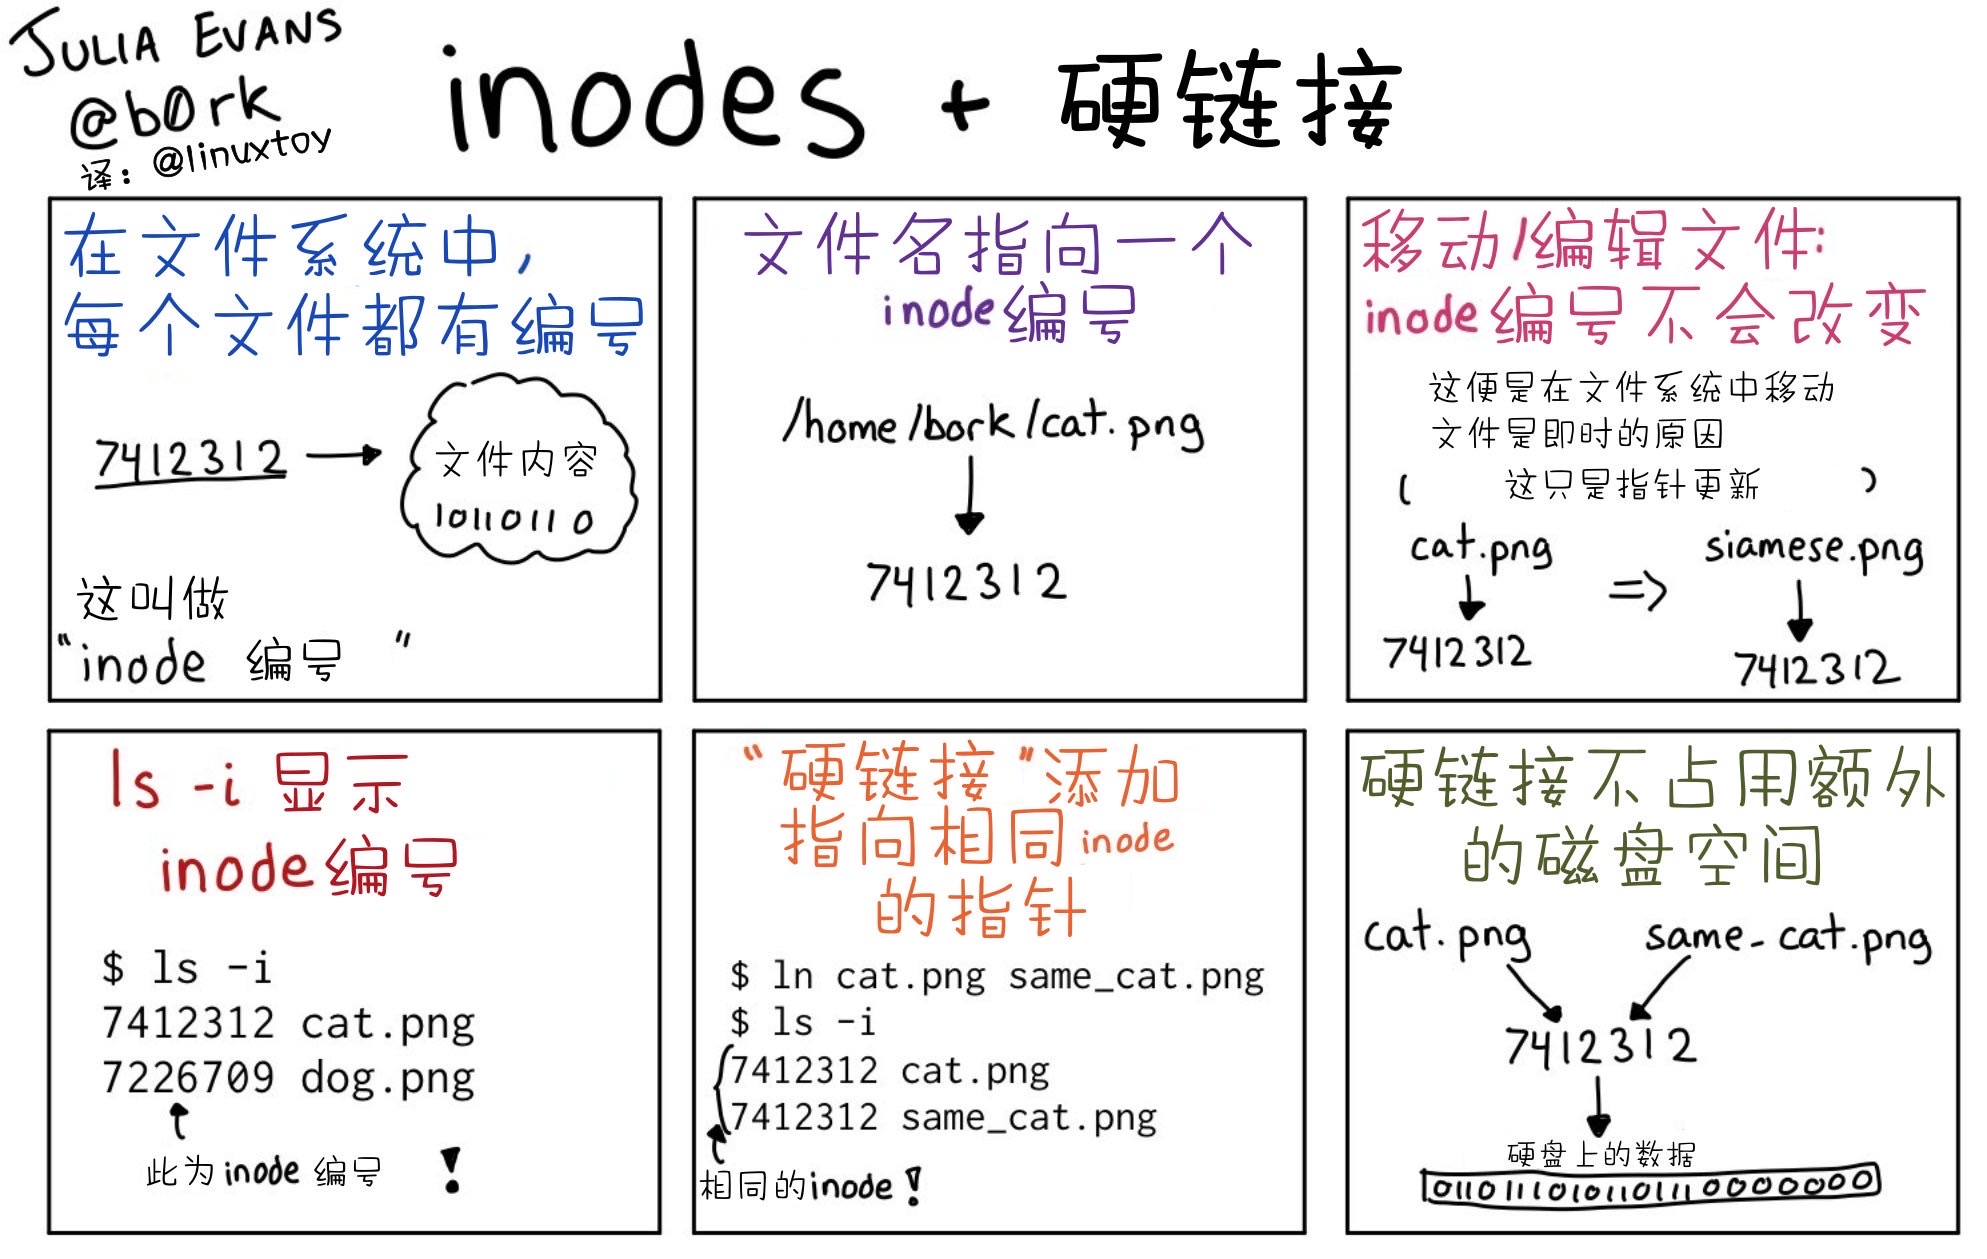 JULIA EVANS
@b0rk
译：@linuxtoy
inodes + 硬链接
在文件系统中,
每个文件都有编号
7412312
文件内容
10110110
这叫做
“inode 编号 ”
文件名指向一个
inode编号
/home/bork/cat.png
7412312
移动/编辑文件:
inode编号不会改变
这便是在文件系统中移动
文件是即时的原因
( 这只是指针更新 )
cat.png => siamese.png
7412312 7412312
ls -i 显示
inode编号
$ ls -i
7412312 cat.png
7226709 dog.png
此为 inode 编号 !
“硬链接”添加
指向相同inode
的指针
$ ln cat.png same_cat.png
$ ls -i
7412312 cat.png
7412312 same_cat.png
相同的inode!
硬链接不占用额外
的磁盘空间
cat.png same_cat.png
7412312
硬盘上的数据
01101110101101110000000